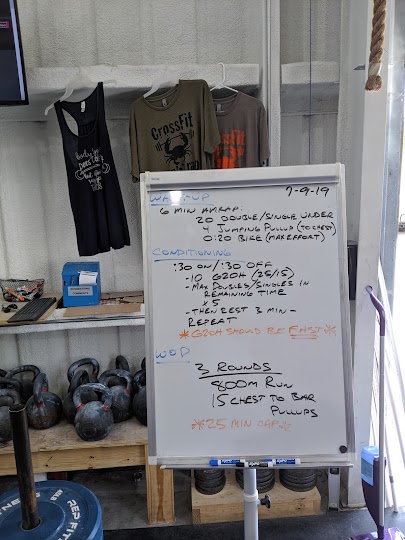 CrossFit
7-9-19
WARM-UP
6 MIN AMRAP:
20 DOUBLE/SINGLE UNDER
4 JUMPING PULLUP (TO CHEST)
0:20 BIKE (MAX EFFORT)
CONDITIONING
:30 ON/:30 OFF
-10 G2OH (25/15)
-MAX DOUBLES/SINGLES IN
REMAINING TIME
x 5
-THEN REST 3 MIN-
REPEAT
*G2OH SHOULD BE FAST*
WOD
3 ROUNDS
800M RUN
15 CHEST TO BAR
PULLUPS
*25 MIN CAP*
REP FITNESS